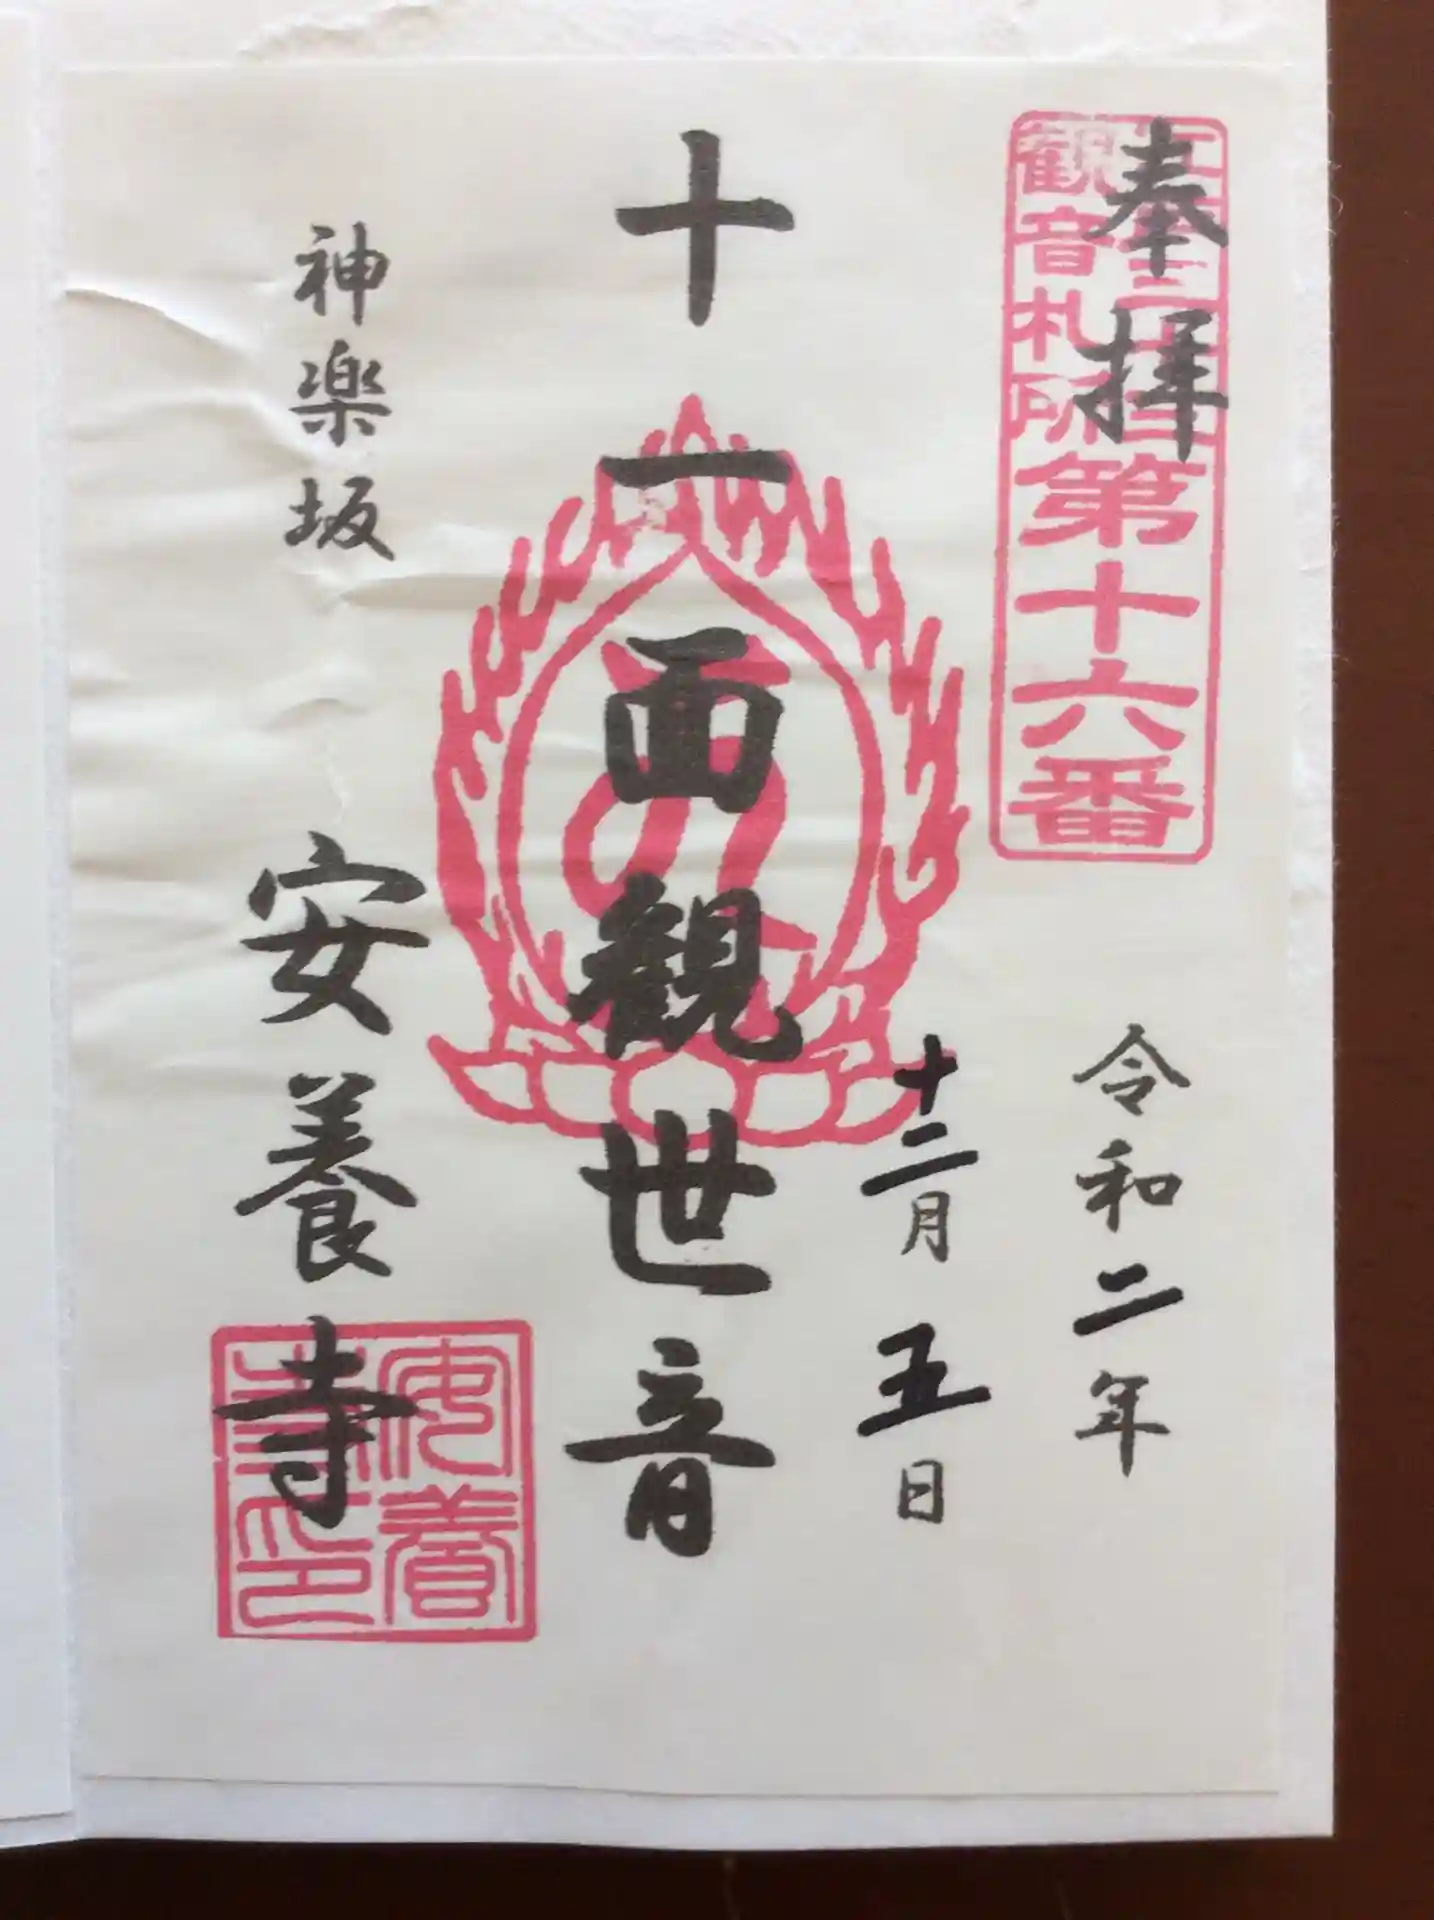 奉拝
江戸三十三
観音札所
第十六番
令和二年
十二月五日
十一面観世音
神楽坂
安養寺
安養
寺印